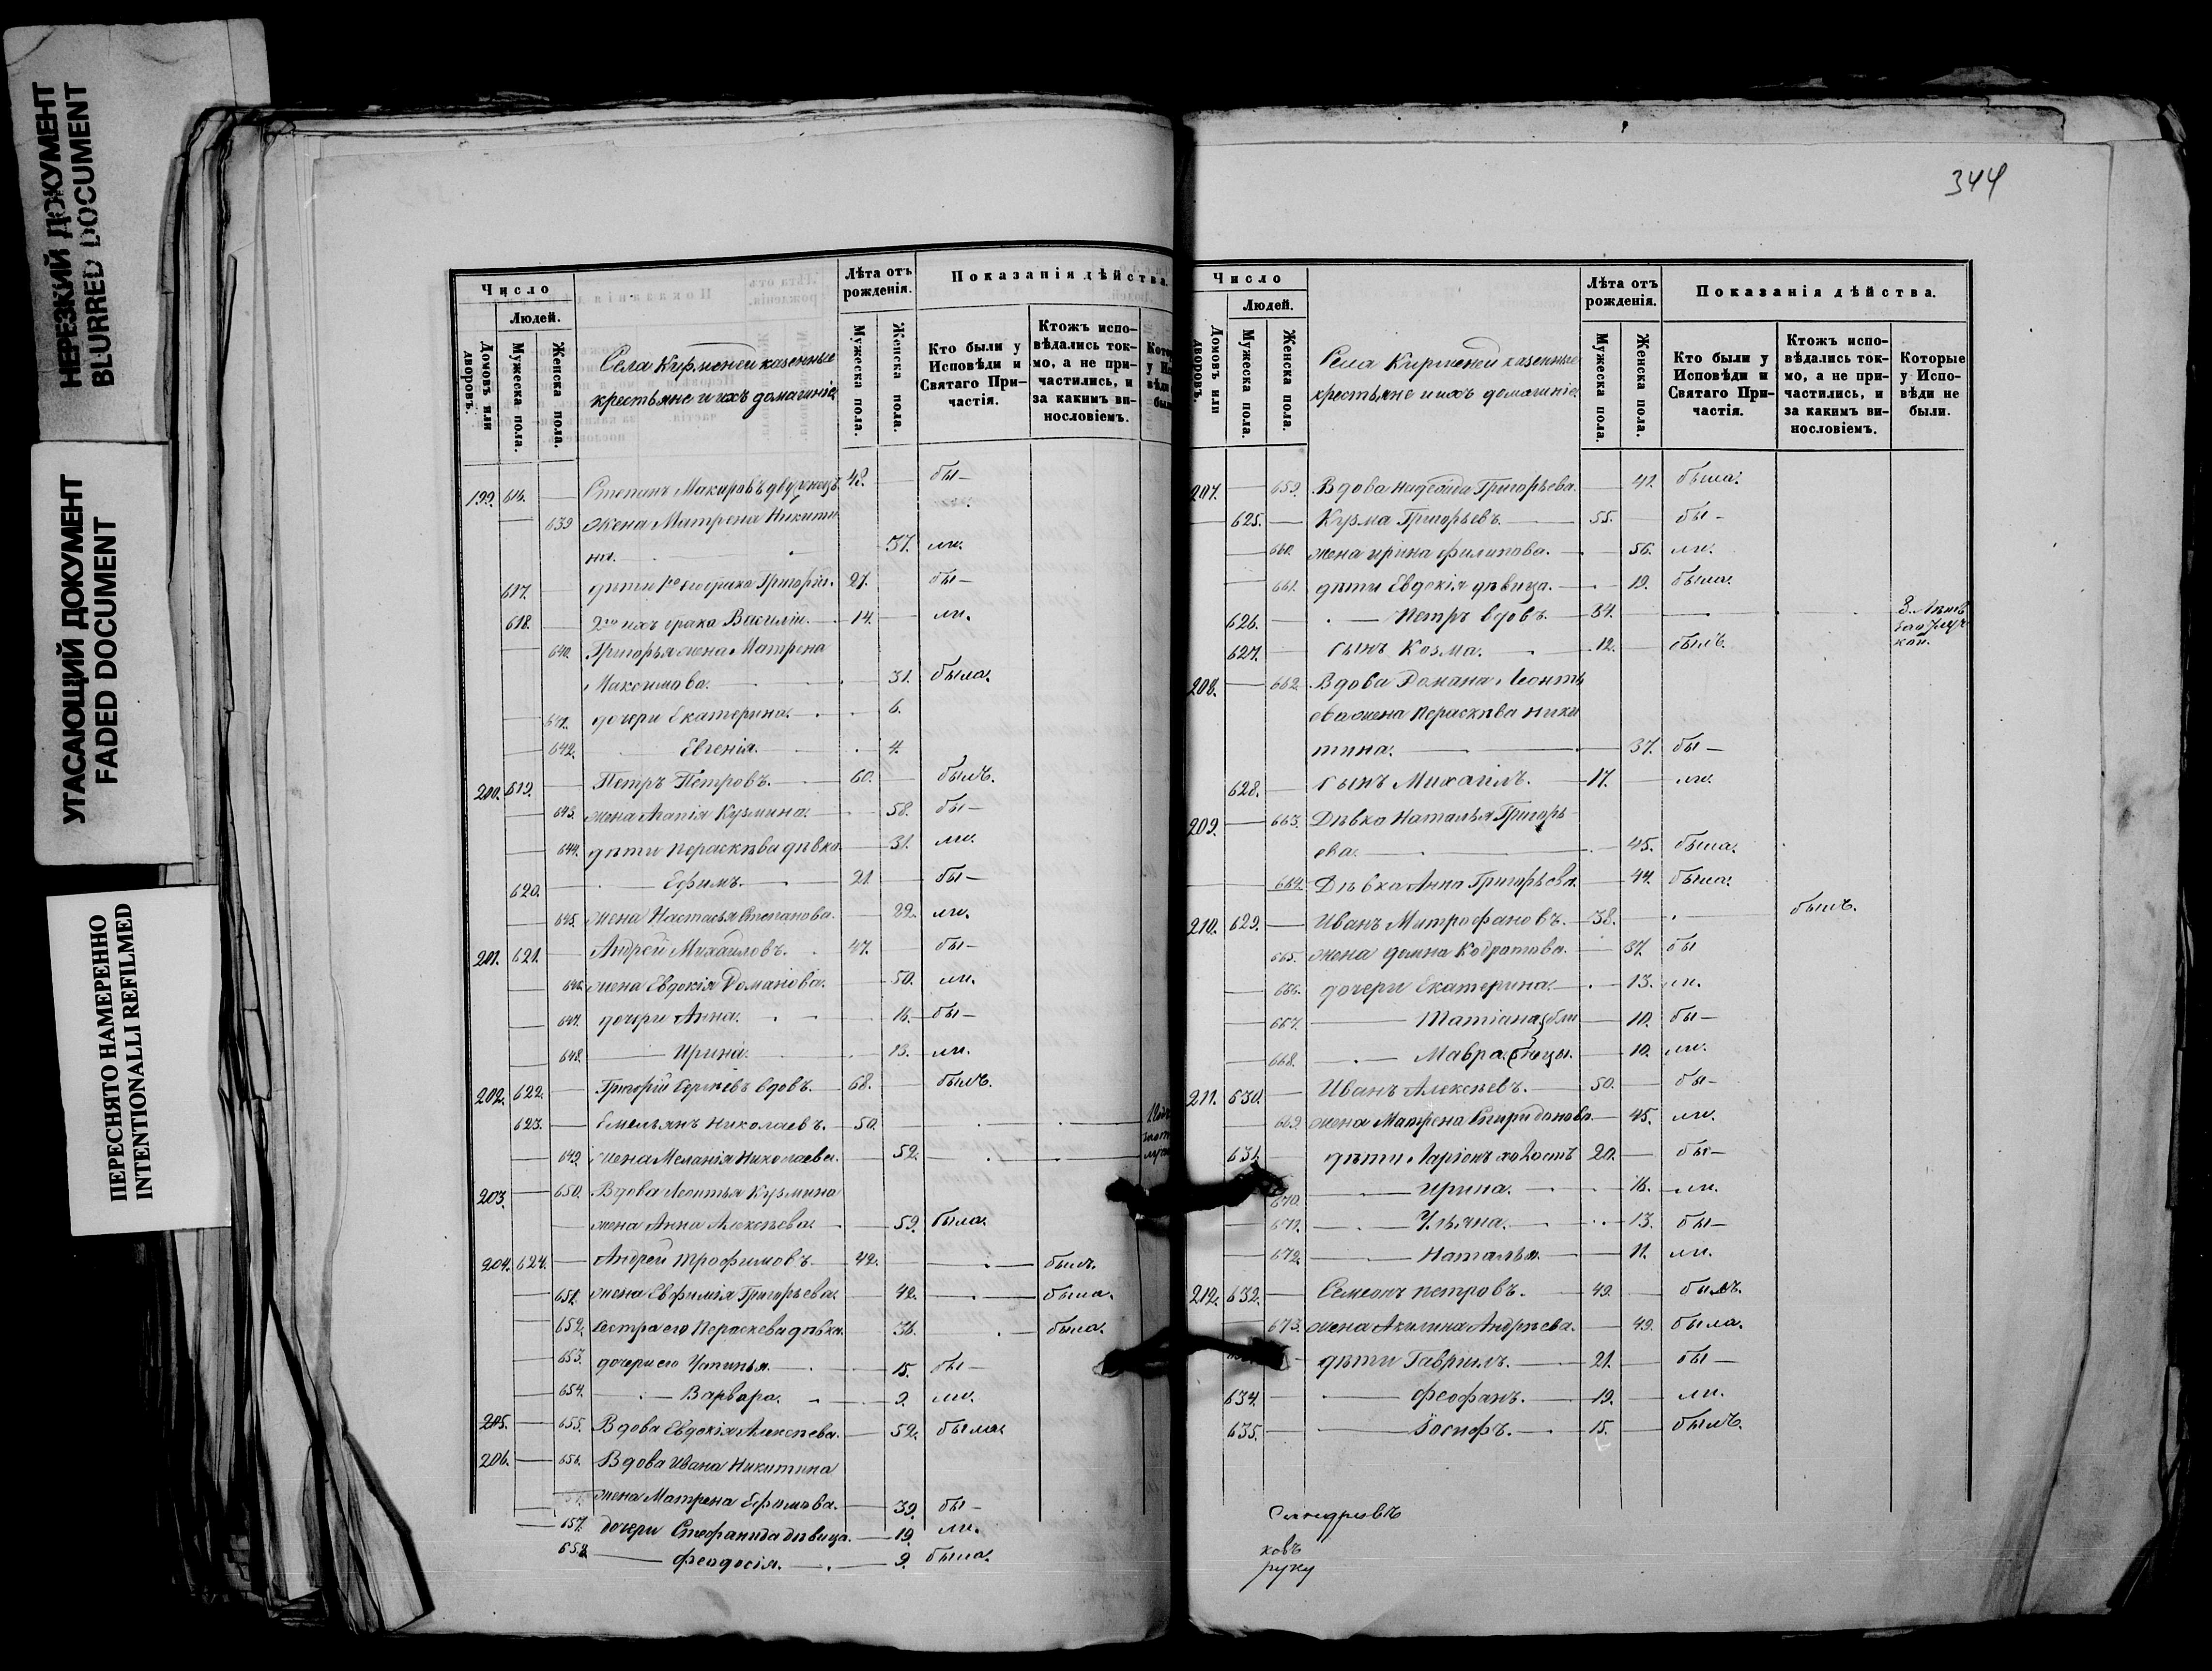 НЕРЕЗКИЙ ДОКУМЕНТ
BLURRED DOCUMENT
УГАСАЮЩИЙ ДОКУМЕНТ
FADED DOCUMENT
ПЕРЕСНЯТО НАМЕРЕННО
INTENTIONALLI REFILMED
Число
Людей.
Домовъ или дворовъ.
Мужеска пола.
Женска пола.
Села Кирменей казенные
крестьяне и ихъ домашніе
Лѣта отъ рожденія.
Мужеска пола.
Женска пола.
Показанія дѣйства.
Кто были у Исповѣди и Святаго Причастія.
Ктожъ исповѣдались токмо, а не причастились, и за какимъ винословіемъ.
199. 616. Степанъ 42. бы—
639 жена Матрена Никити
на. 37. ли.
617. дѣти 1е Григорій. 27. бы—
618. 2го Василій. 14. ли.
640. Григорья жена Матрена
Максимова. 31. была.
641. дочери Екатерина. 6.
642. Евгенія. 4.
200. 619. Петръ Петровъ. 60. былъ.
643. жена Агапія Кузмина. 58. бы—
644. дѣти Пераскѣва дѣвка 31. ли.
620. Ефимъ. 21. бы—
645. жена Настасья Степанова. 22. ли.
201. 621. Андрей Михаиловъ. 47. бы—
646. жена Евдокія Романова. 50. ли.
647. дочери Анна. 16. бы—
648. Ирина. 13. ли.
202. 622. Григорій Сергѣевъ вдовъ. 68. былъ.
623. Емельянъ Николаевъ. 50.
649. жена Меланія Николаева. 52.
203. 650. Вдова Леонтья Кузмина
жена Анна Алексѣева. 59. была.
204. 624. Андрей Трофимовъ. 42. былъ.
651. жена Евфимія Григорьева. 42. была.
652. сестра его Пераскева дѣвка. 36. была.
653. дочери его 15. бы—
654. Варвара. 9. ли.
205. 655. Вдова Евдокія Алексѣева. 52. была.
206. 656. Вдова Ивана Никитина
жена Матрена Ефимова. 39. бы—
657. дочери Стефанида дѣвица. 19. ли.
658. Феодосія. 9. была.
344
Число
Людей.
Домовъ или дворовъ.
Мужеска пола.
Женска пола.
Села Кирменей казенные
крестьяне и ихъ домашніе
Лѣта отъ рожденія.
Мужеска пола.
Женска пола.
Показанія дѣйства.
Кто были у Исповѣди и Святаго Причастія.
Ктожъ исповѣдались токмо, а не причастились, и за какимъ винословіемъ.
Которые у Исповѣди не были.
207. 659. Вдова Надежда Григорьева. 41. была.
625. Кузма Григорьевъ. 55. бы—
660. жена Ирина Филипова. 56. ли.
661. дѣти Евдокія дѣвица. 19. была.
626. Петръ вдовъ. 34.
627. сынъ Козма. 12. былъ.
208. 662. Вдова Романа Леонть
ева жена Пераскѣва Ники
тина. 37. бы—
628. сынъ Михаилъ. 17. ли.
209. 663. Дѣвка Наталья Григорь
ева. 45. была.
664. Дѣвка Анна Григорьева. 44. была.
210. 629. Иванъ Митрофановъ. 38. былъ.
665. жена Домна Кодратова. 37. бы
666. дочери Екатерина. 13. ли.
667. Татіана 10. бы—
668. Мавра 10. ли.
211. 630. Иванъ Алексѣевъ. 50. бы—
669. жена Матрена Спиридонова. 45. ли.
631. дѣти Ларіонъ холостъ 20. бы—
670. Ирина. 16. ли.
671. Ульяна. 13. бы—
672. Наталья. 11. ли.
212. 632. Семеонъ Петровъ. 49. былъ.
673. жена Акилина Андрѣева. 49. была.
дѣти Гавріилъ. 21. бы—
634. Феофанъ. 19. ли.
635. Іосифъ. 15. былъ.
ковъ
руку